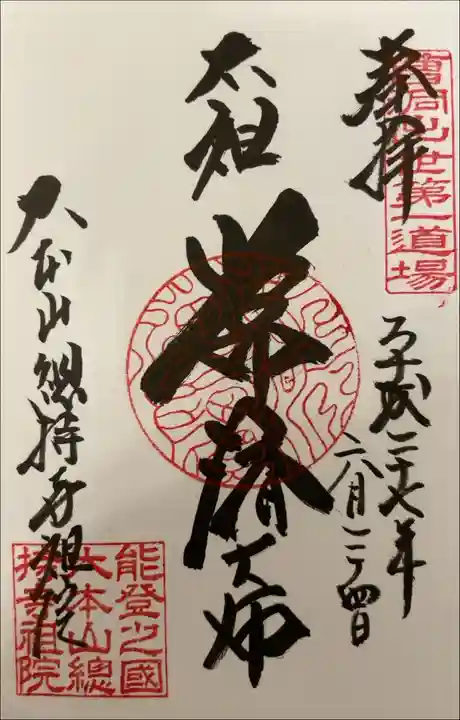 曹洞出世第一道場
奉拝
平成二十七年
六月二十四日
太祖
常濟大師
大本山總持寺祖院
能登之國
大本山總
持寺祖院